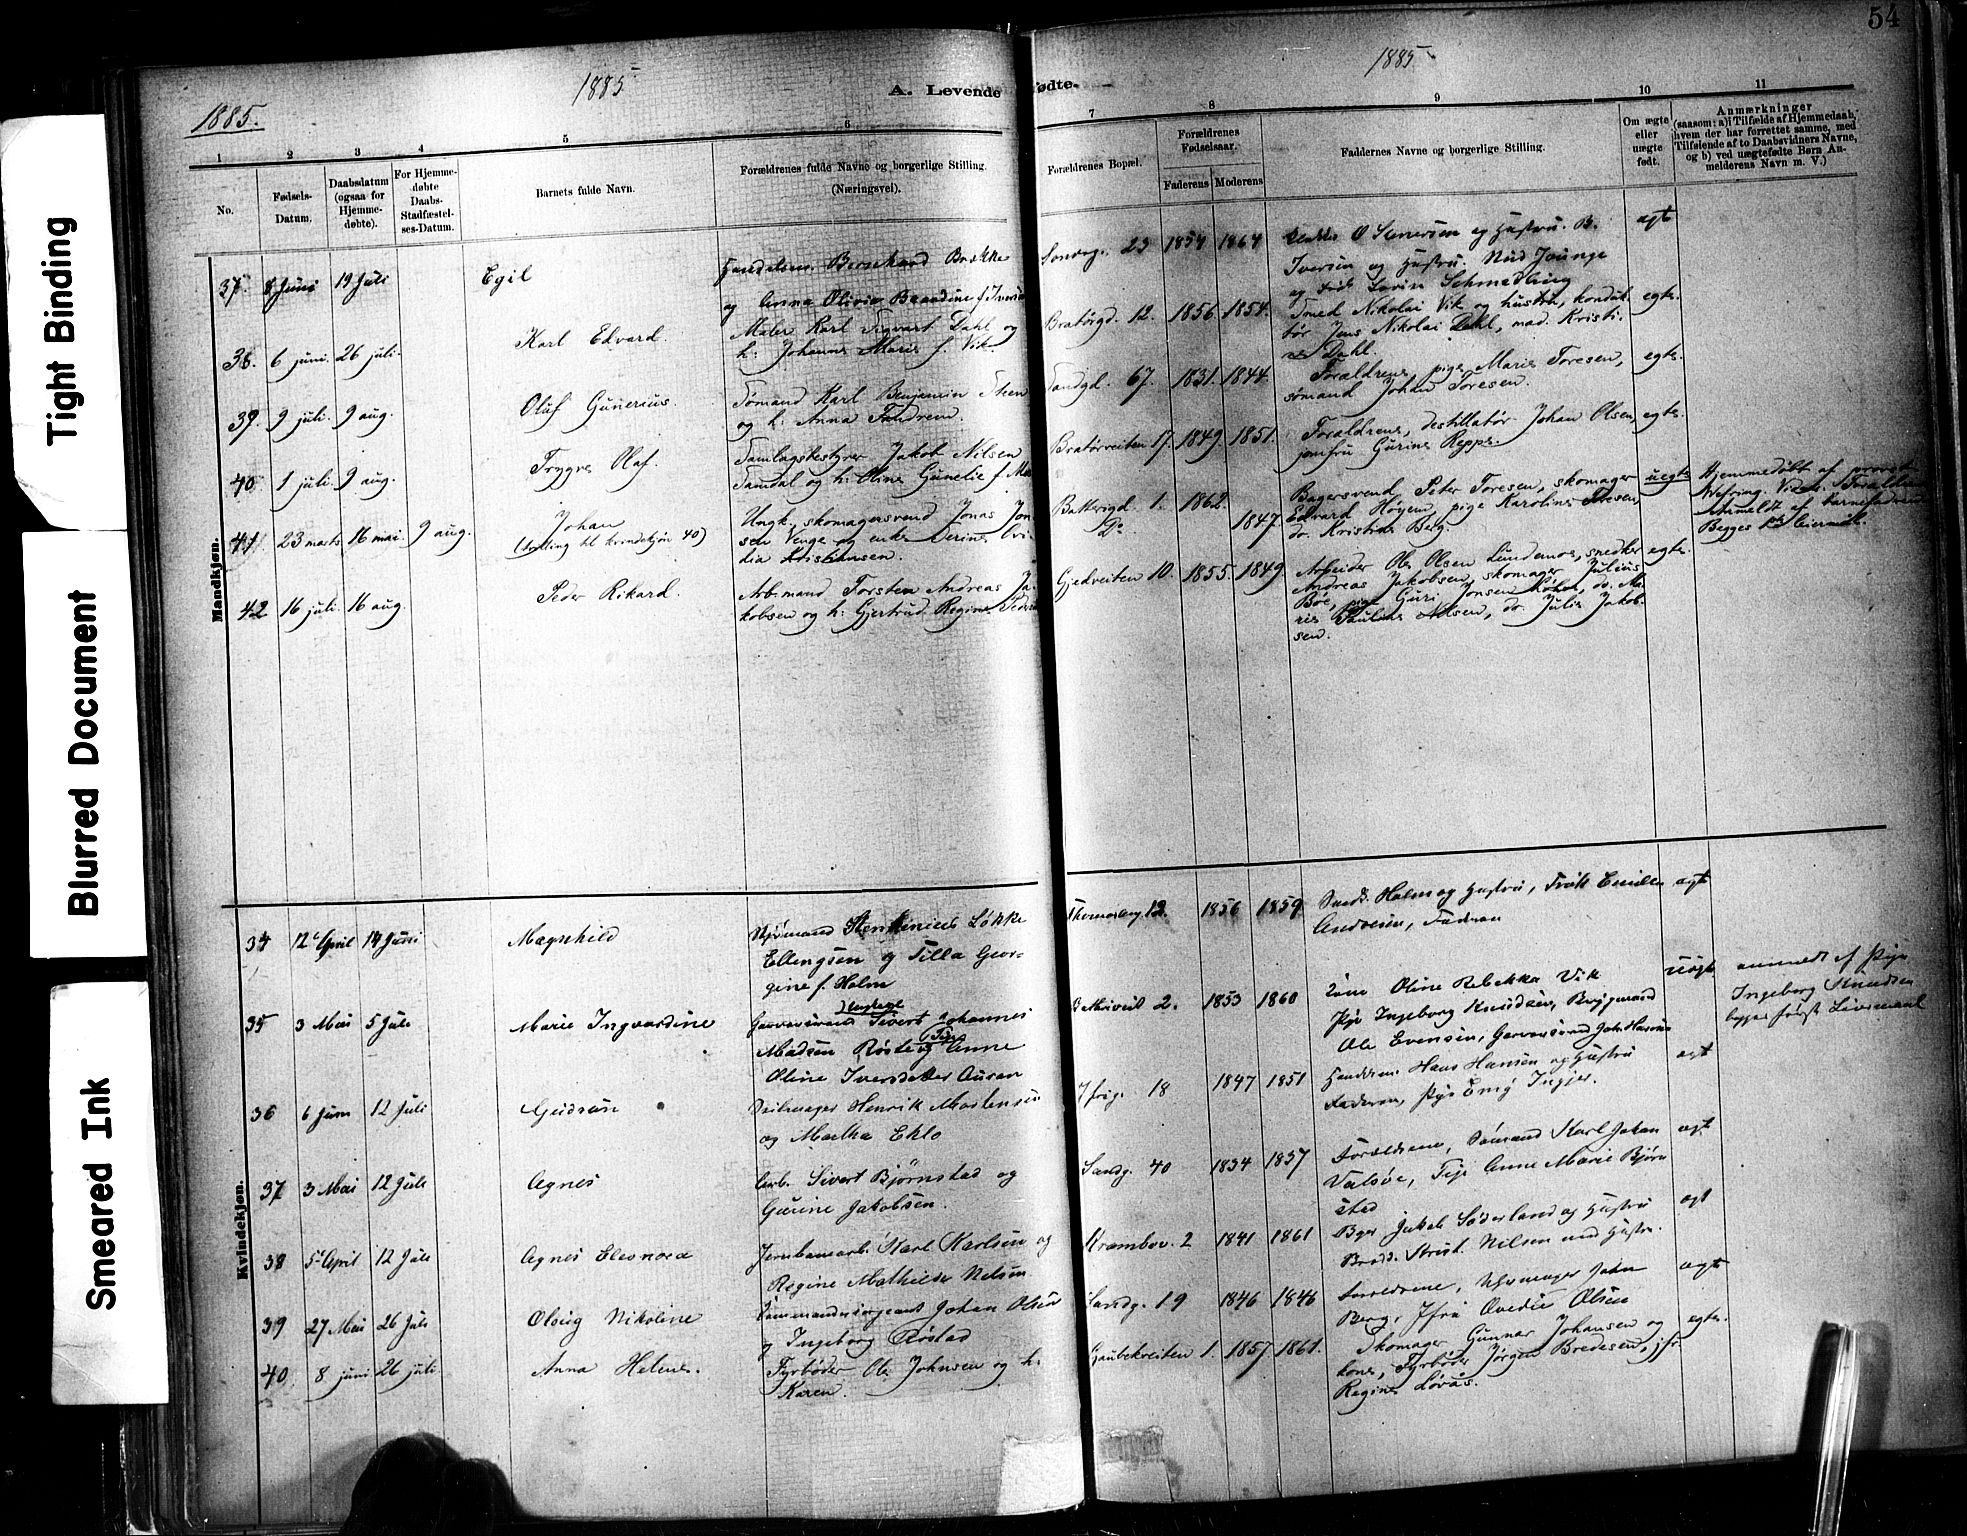 Tight Binding
Blurred Document
Smeared Ink
54
1885
1885
1885.
A. Levende
fødte.
1 2 3 4 5 6 7 8 9 10 11
No.
Fødsels-
Datum.
Daabsdatum
(ogsaa for
Hjemme-
døbte).
For Hjemme-
døbte
Daabs-
Stadfæstel-
ses-Datum.
Barnets fulde Navn.
Forældrenes fulde Navne og borgerlige Stilling.
(Næringsvei).
Forældrenes Bopæl.
Forældrenes
Fødselsaar.
Faderens Moderens
Faddernes Navne og borgerlige Stilling.
Om ægte
eller
uægte
født.
Anmærkninger
(saasom: a) i Tilfælde af Hjemmedaab,
hvem der har forrettet samme, med
Tilføiende af to Daabsvidners Navne,
og b) ved uægtefødte Børn An-
melderens Navn m. V.)
Mandkjøn.
37. 8 Juni 19 Juli
Egil
Bernhard Brekke
og Anna Olivia Berndine f. Iversen
23 1854 1864
O Senersen og Hustru. B.
Iversen og Hustru.
Schmedling
ægt
38. 6 juni. 26 juli.
Karl Edvard.
Maler Karl Sigvart Dahl og
h: Johanne Marie f. Vik.
Bratørgd. 12. 1856. 1854.
Smed Nikolai Vik og hustru, konduk-
tør Jens Nikolai Dahl, mad. Kristi-
ne Dahl.
egte.
39. 9 juli. 9 aug.
Oluf Gunerius.
Sømand Karl Benjamin Steen
og h: Anna Sandrem.
Sandgd. 67. 1831. 1844.
Forældrene, pige Marie Toresen,
sømand Johan Toresen.
egte.
40. 1 juli. 9 aug.
Trygve Olaf.
Samlagsbestyrer Jakob Nilsen
Samdal og h: Oline Gunelie f.
Bratørveiten 17. 1849. 1851.
Forældrene, destillatør Johan Olsen,
jomfru Gurine Reppe.
egte.
41 23 marts 16 mai. 9 aug.
Johan
(tvilling til kvindekjøn 40)
Ungk. skomagersvend Jonas Jon-
sen Venge og enke Serine Ovi-
dia Kristiansen.
Batterigd. 1. 1862.
Do 1847
Bagersvend Peter Toresen, skomager
Edvard Høyem, pige Karoline Toresen,
do. Kristine Berg.
uegte
Hjemmedøbt af provst
Anmeldt af barnefaderen
Begges 1ste leiermål.
42 16 juli. 16 aug.
Peder Rikard.
Arb.mand Torsten Andreas Ja-
kobsen og h: Gjertrud Regine
Gjedveiten 10. 1855. 1849
Arbeider Ole Olsen Lundemo, snedker
Andreas Jakobsen, skomager Julius
Bøe, pige Guri Jonsen, do. Ma-
rie Pauline Nilsen, do. Julie Jakob-
sen.
egte.
Kvindekjøn.
34 12 April 14 Juni
Magnhild
Styrmand Løkke
Ellengsen og Tilla Geor-
gine f. Holm
12. 1856 1859
Holm og Hustru, Frøk Emilie
Andresen, Faderen
ægt
35 3 Mai 5 Juli
Marie Ingvardine
Ungkarl
Garversvend Sivert Johannes
Madsen Røste og Pige Anne
Oline Iversdatter Ousan
2. 1853 1860
Oline Rebekka Vik
Pige Ingeborg Knudsen, Bryggemand
Ole Evensen, Garversvend Joh. Hansen
uægt
anmeldt af Pige
Ingeborg Knudsen
begges første Leiermaal
36 6 Juni 12 Juli
Gudrun
Seilmager Henrik Mortensen
og Martha Eklo
18 1847 1851
Hans Hansen og Hustru
Faderen, Pige Emy Ingier.
ægt
37 3 Mai 12 Juli
Agnes
Arb. Sivert Bjørnstad og
Gurine Jakobsen.
Sandg. 40 1834 1837
Forældrene, Sømand Karl Johan
Valsøe, Pige Anne Marie Bjørn
stad
ægt
38 5 April 12 Juli
Agnes Eleonora
Jernbanearb. Karl Karlsen og
Regine Mathilde Nilsen
Krambov. 2 1841 1861
Jakob Søderland og Hustru
Krist. Nilsen med Hustru.
ægt
39 27 Mai 26 Juli
Olaug Nikoline
Kommandersergeant Johan Olsen
og Ingeborg Røstad
Sandg. 19 1846 1846
Forældrene, Uhrmager John
Berg, Jfru Ovedie Olsen
ægt
40 8 juni 26 juli.
Anna Helene.
Fyrbøder Ole Johnsen og h:
Karen.
Gaubekveiten 1. 1857 1861.
Skomager Gunnar Johansen og
kone, Fyrbøder Jørgen Bredesen, jfr.
Regine Løvås.
egte.